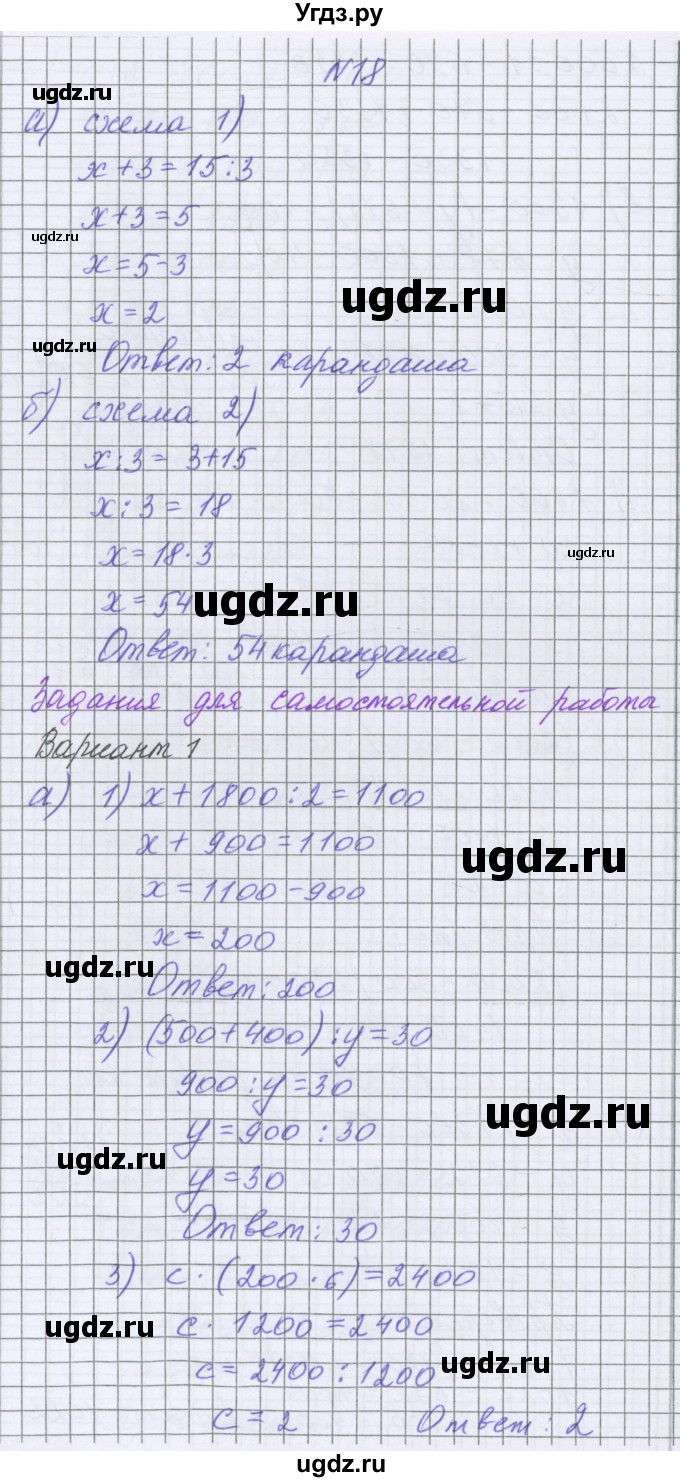 Угдз.ру
N18
ugdz.ru
а) схема 1)
x + 3 = 15 : 3
x + 3 = 5
ugdz.ru
x = 5 - 3
ugdz.ru
x = 2
ugdz.ru
Ответ: 2 карандаша
б) схема 2)
x : 3 = 3 + 15
x : 3 = 18
x = 18 · 3
ugdz.ru
x = 54
ugdz.ru
Ответ: 54 карандаша
Задания для самостоятельной работы
Вариант 1
а) 1) x + 1800 : 2 = 1100
x + 900 = 1100
ugdz.ru
x = 1100 - 900
x = 200
ugdz.ru
Ответ: 200
2) (500 + 400) : y = 30
900 : y = 30
ugdz.ru
y = 900 : 30
ugdz.ru
y = 30
Ответ: 30
3) c · (200 · 6) = 2400
c · 1200 = 2400
ugdz.ru
c = 2400 : 1200
ugdz.ru
c = 2 Ответ: 2
ugdz.ru